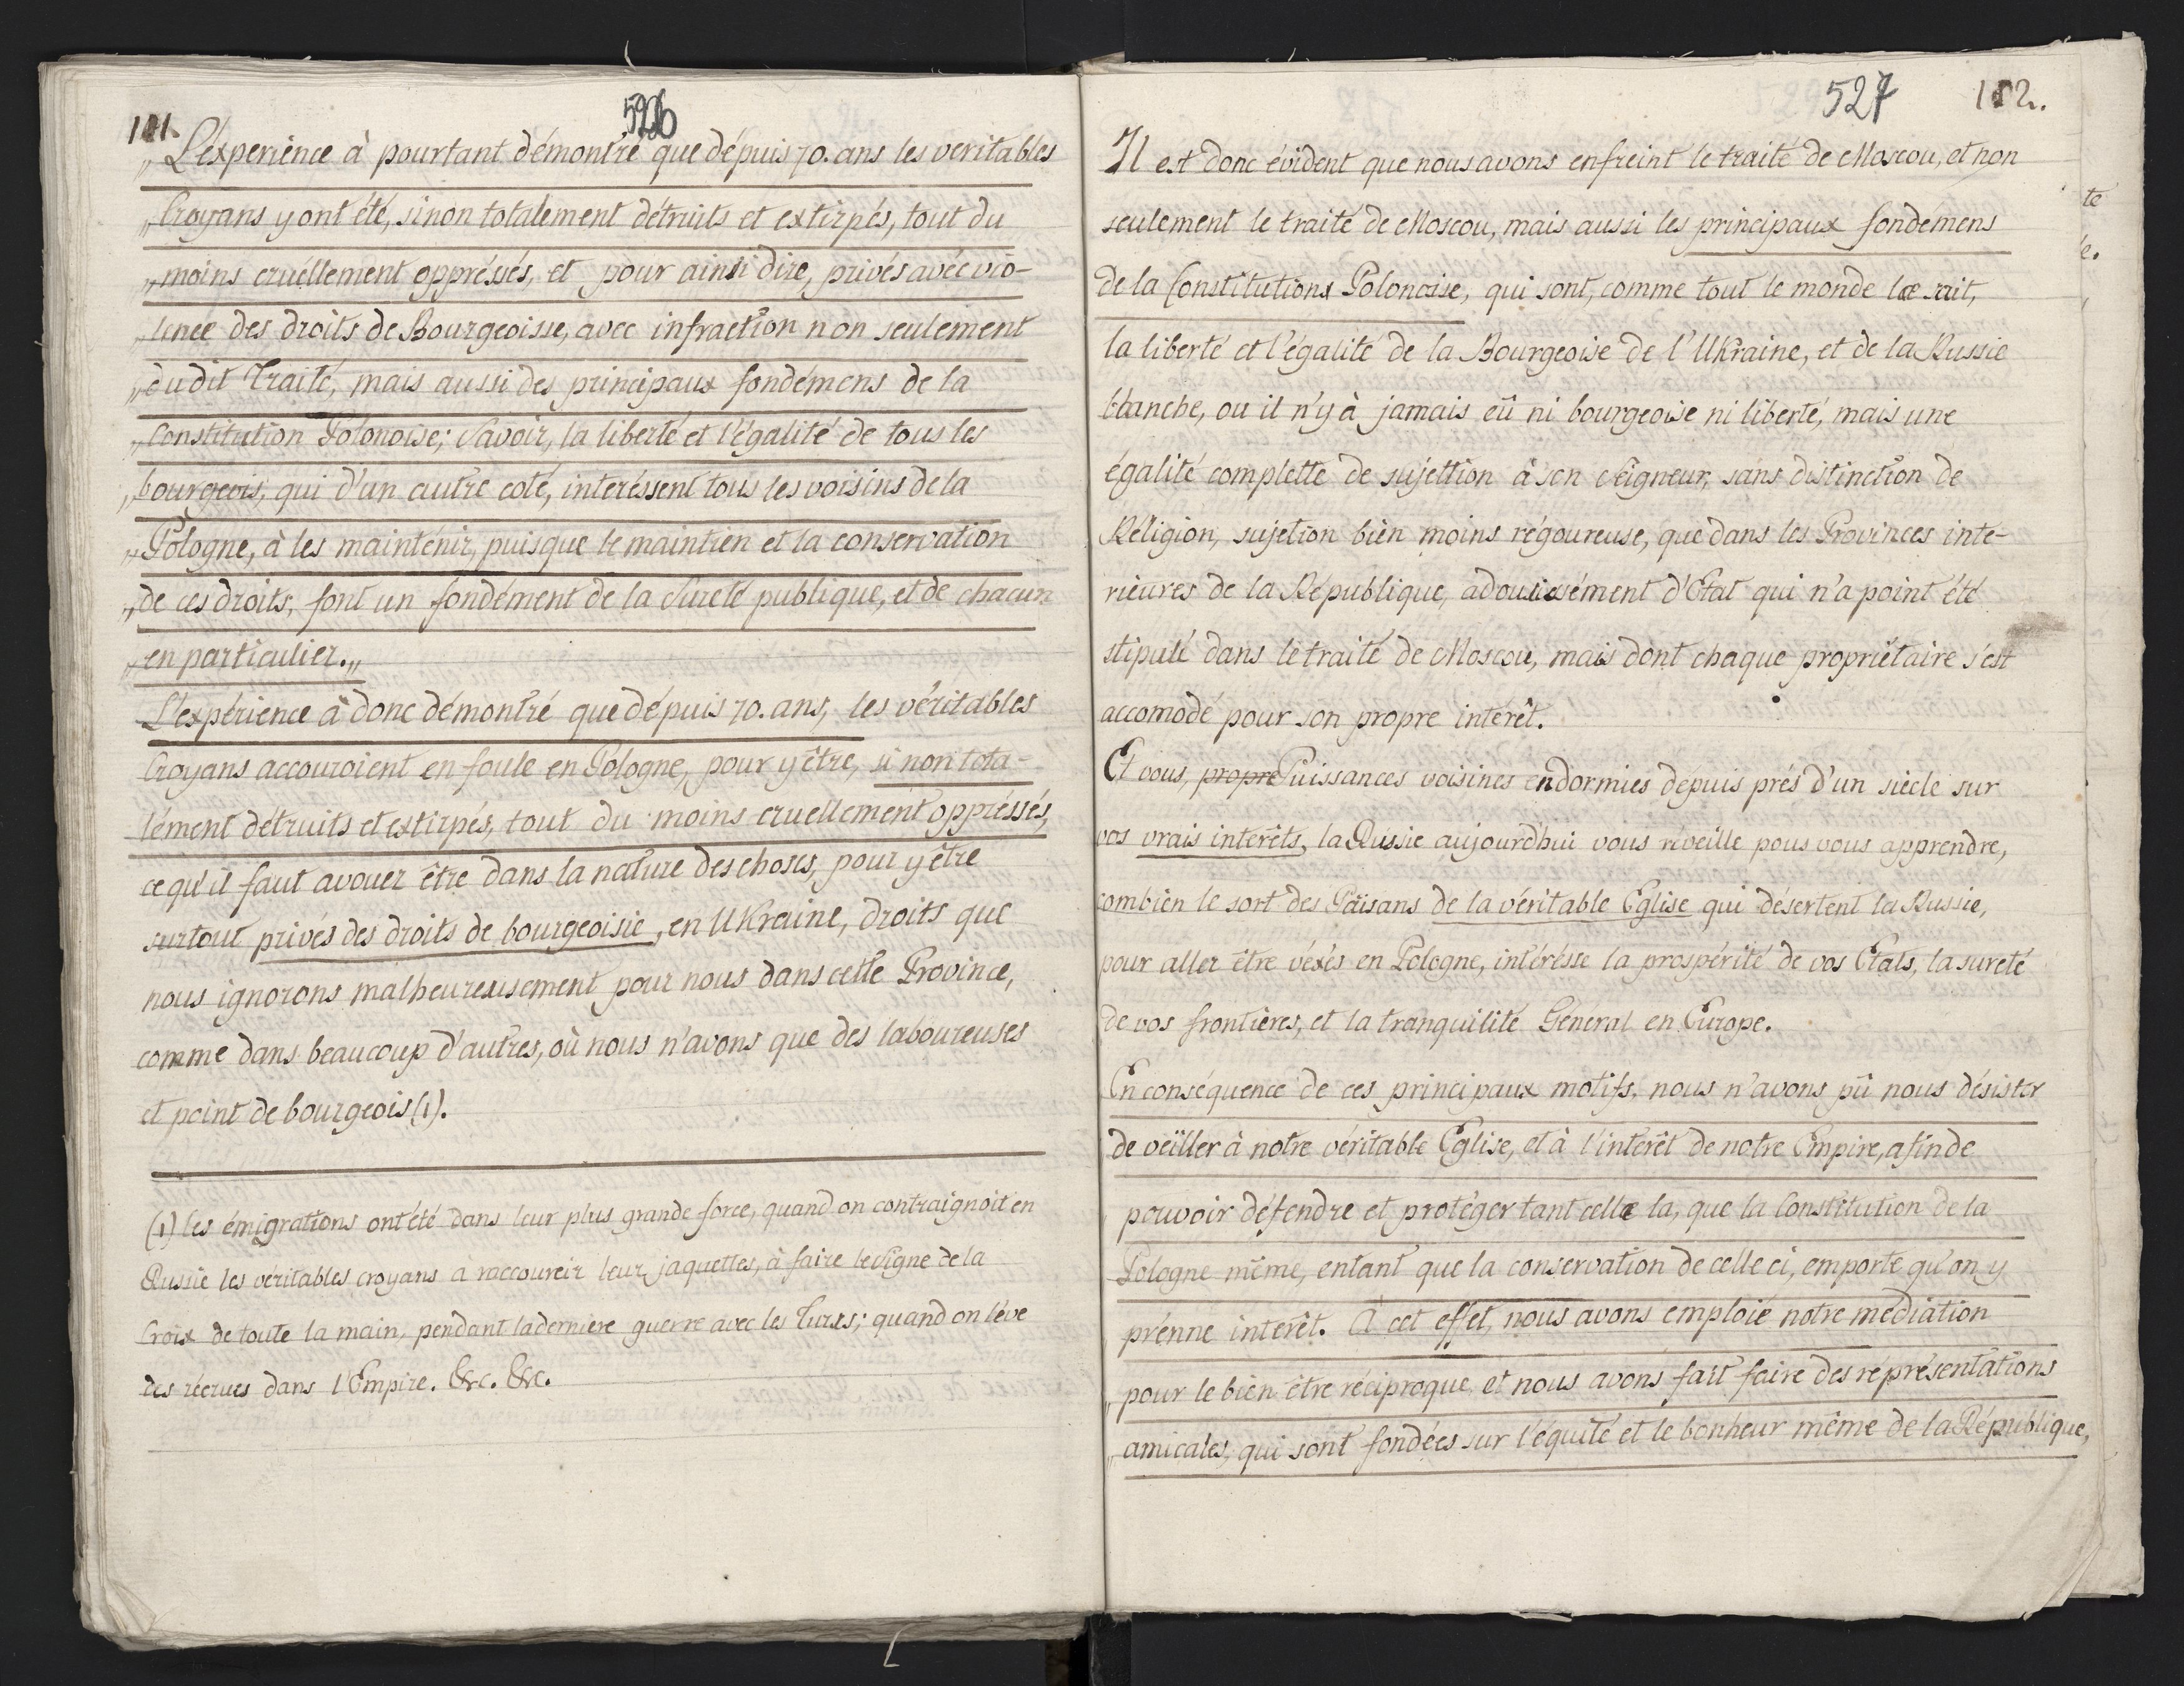 101.
526
„L'éxperience à pourtant démontré que dépuis 70. ans les veritables
„Croyans y ont été, sinon totalement détruits et extirpés, tout du
„moins cruéllement oppréssés, et pour ainsi dire, privés avéc vio-
„lence des droits de Bourgeoisse, avec infraction non seulement
„du dit Traité, mais aussi des principaux fondémens de la
„Constitution Polonoise; Savoir, la liberté et l'égalité de tous les
„bourgeois, qui d'un autre coté, interéssent tous les voisins de la
„Pologne, à les mainténir, puisque le maintien et la conservation
„de ces droits, font un fondément de la Sureté publique, et de chacun
„en particulier.„
L'expérience à donc démontré que dépuis 70. ans, les véritables
Croyans accouroient en foule en Pologne, pour y être, si non tota-
lément détruits et extirpés, tout du moins cruellement oppréssés,
ce qu'il faut avouer être dans la nature des choses, pour y être
surtout privés des droits de bourgeoisie, en UKraine, droits que
nous ignorons malheureusement pour nous dans cette Province,
comme dans beaucoup d'autres, où nous n'avons que des laboureuses
et point de bourgeois (1).
(1) les émigrations ont été dans leur plus grande force, quand on contraignoit en
Russie les véritables croyans à raccourcir leur jaquettes, à faire le signe de la
Croix de toute la main, pendant la derniere guerre avec les Turxs; quand on léve
des récrues dans l'Empire. &c. &c.
527
102.
Il est donc évident que nous avons enfreint le traité de Moscou, et non
seulement le traité de Moscou, mais aussi les principaux fondémens
de la Constitutions Polonoise, qui sont, comme tout le monde le sait,
la liberté et l'égalité de la Bourgeoise de l'UKraine, et de la Russie
blanche, ou il n'y à jamais eû ni bourgeoise ni liberté, mais une
égalité complette de sujettion à son Seigneur, sans distinction de
Réligion, sujetion bièn moins régoureuse, que dans les Provinces inte-
rieures de la République, adoucissément d'Etat qui n'a point été
stipulé dans le traité de Moscou, mais dont chaque propriétaire s'est
accomodé pour son propre intérêt.
Et vous, propre Puissances voisines endormies depuis prés d'un siècle sur
vos vrais interêts, la Russie aujourd'hui vous réveille pous vous apprendre,
combièn le sort des Païsans de la véritable Eglise qui désertent la Russie,
pour aller être véxés en Pologne, intérésse la prospérité de vos Etats, la sureté
de vos frontières, et la tranquilité Général en Europe.
En conséquence de ces principaux motifs, nous n'avons pû nous désister
de veiller à notre véritable Eglise, et à l'interêt de notre Empire, afin de
pouvoir défendre et protéger tant celle la, que la Constitution de la
Pologne même, entant que la conservation de celle ci, emporte qu'on y
prénne interêt. A cet effet, nous avons emploié notre médiation
„pour le bien être réciproque, et nous avons fait faire des représentations
„amicales, qui sont fondées sur l'équité et le bonheur même de la République,
te
le.